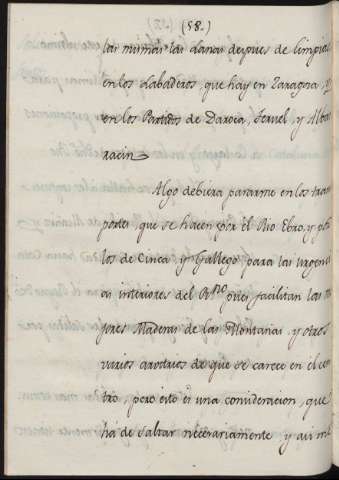 (58.)
las mismas las Lanas despues de limpias
en los Labaderos, que hay en Zaragoza, y
en los Partidos de Daroca, Teruel, y Albar
racin
Algo debiera pararme en los trans
portes, que se hacen por el Rio Ebro, y por
los de Cinca y Gallego para las urgenci
as interiores del Rno pues facilitan las me
jores Maderas de las Montañas, y otros
varios arvitrios de que se carece en el cen
tro, pero esto es una consideracion, que
há de saltar necesariamente y asi me